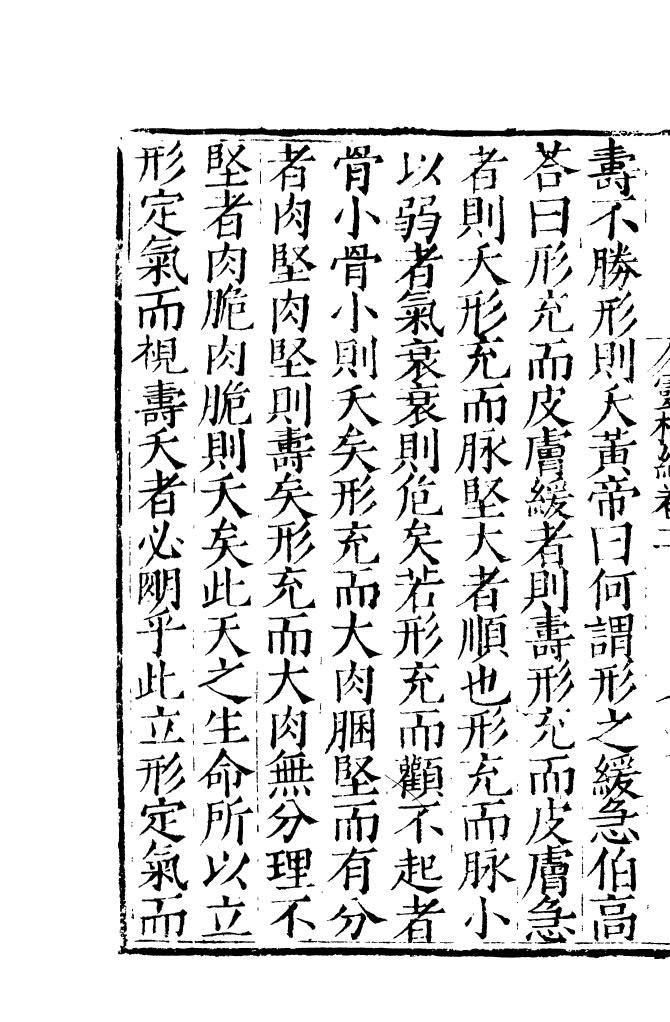 壽不勝形則夭黃帝曰何謂形之緩急伯高
荅曰形充而皮膚緩者則壽形充而皮膚急
者則夭形充而脉堅大者順也形充而脉小
以弱者氣衰衰則危矣若形充而顴不起者
骨小骨小則夭矣形充而大肉䐃堅而有分
者肉堅肉堅則壽矣形充而大肉無分理不
堅者肉脆肉脆則夭矣此天之生命所以立
形定氣而視壽夭者必明乎此立形定氣而